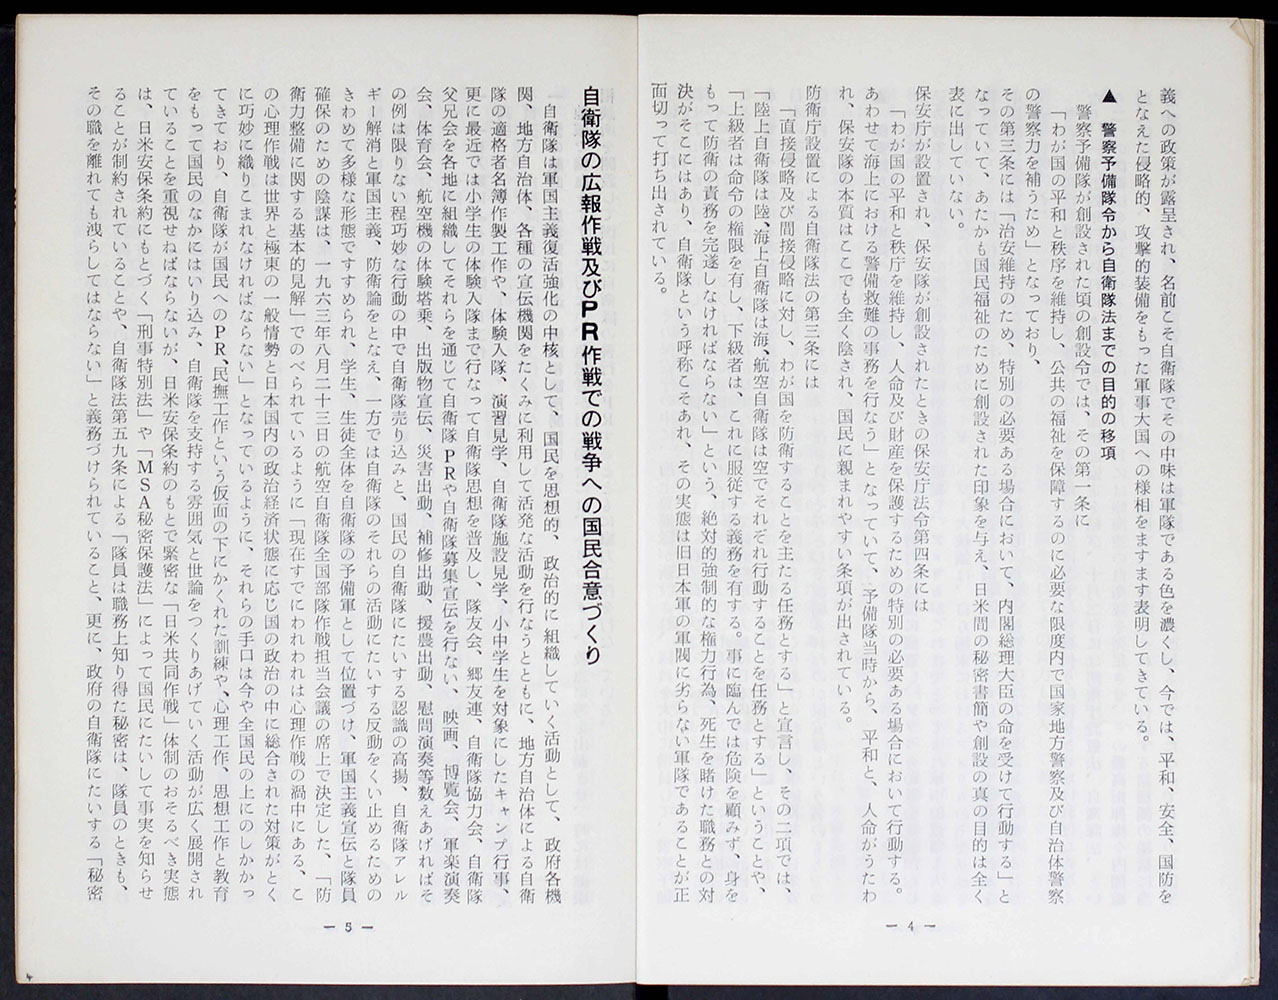 義への政策が露呈され、名前こそ自衛隊でその中味は軍隊である色を濃くし、今では、平和、安全、国防を
となえた侵略的、攻撃的装備をもった軍事大国への様相をますます表明してきている。
▲ 警察予備隊令から自衛隊法までの目的の移項
警察予備隊が創設された頃の創設令では、その第一条に
「わが国の平和と秩序を維持し、公共の福祉を保障するのに必要な限度内で国家地方警察及び自治体警察
の警察力を補うため」となっており、
その第三条には「治安維持のため、特別の必要ある場合において、内閣総理大臣の命を受けて行動する」と
なっていて、あたかも国民福祉のために創設された印象を与え、日米間の秘密書簡や創設の真の目的は全く
表に出していない。
保安庁が設置され、保安隊が創設されたときの保安庁法令第四条には
「わが国の平和と秩庁を維持し、人命及び財産を保護するための特別の必要ある場合において行動する。
あわせて海上における警備救難の事務を行なう」となっていて、予備隊当時から、平和と、人命がうたわ
れ、保安隊の本質はここでも全く陰され、国民に親まれやすい条項が出されている。
防衛庁設置による自衛隊法の第三条には
「直接侵略及び間接侵略に対し、わが国を防衛することを主たる任務とする」と宣言し、その二項では、
「陸上自衛隊は陸、海上自衛隊は海、航空自衛隊は空でそれぞれ行動することを任務とする」ということや、
「上級者は命令の権限を有し、下級者は、これに服従する義務を有する。事に臨んでは危険を顧みず、身を
もって防衛の責務を完遂しなければならない」という、絶対的強制的な権力行為、死生を賭けた職務との対
決がそこにはあり、自衛隊という呼称こそあれ、その実態は旧日本軍の軍閥に劣らない軍隊であることが正
面切って打ち出されている。
― 4 ―
自衛隊の広報作戦及びPR作戦での戦争への国民合意づくり
自衛隊は軍国主義復活強化の中核として、国民を思想的、政治的に組織していく活動として、政府各機
関、地方自治体、各種の宣伝機関をたくみに利用して活発な活動を行なうとともに、地方自治体による自衛
隊の適格者名簿作製工作や、体験入隊、演習見学、自衛隊施設見学、小中学生を対象にしたキャンプ行事、
更に最近では小学生の体験入隊まで行なって自衛隊思想を普及し、隊友会、郷友連、自衛隊協力会、自衛隊
父兄会を各地に組織してそれらを通じて自衛隊PRや自衛隊募集宣伝を行ない、映画、博覧会、軍楽演奏
会、体育会、航空機の体験塔乗、出版物宣伝、災害出動、補修出動、援農出動、慰問演奏等数えあげればそ
の例は限りない程巧妙な行動の中で自衛隊売り込みと、国民の自衛隊にたいする認識の高揚、自衛隊アレル
ギー解消と軍国主義、防衛論をとなえ、一方では自衛隊のそれらの活動にたいする反動をくい止めるための
きわめて多様な形態ですすめられ、学生、生徒全体を自衛隊の予備軍として位置づけ、軍国主義宣伝と隊員
確保のための陰謀は、一九六三年八月二十三日の航空自衛隊全国部隊作戦担当会議の席上で決定した、「防
衛力整備に関する基本的見解」でのべられているように「現在すでにわれわれは心理作戦の渦中にある、こ
の心理作戦は世界と極東の一般情勢と日本国内の政治経済状態に応じ国の政治の中に総合された対策がとく
に巧妙に織りこまれなければならない」となっているように、それらの手口は今や全国民の上にのしかかっ
てきており、自衛隊が国民へのPR、民撫工作という仮面の下にかくれた訓練や、心理工作、思想工作と教育
をもって国民のなかにはいり込み、自衛隊を支持する雰囲気と世論をつくりあげていく活動が広く展開され
ていることを重視せねばならないが、日米安保条約のもとで緊密な「日米共同作戦」体制のおそるべき実態
は、日米安保条約にもとづく「刑事特別法」や「MSA秘密保護法」によって国民にたいして事実を知らせ
ることが制約されていることや、自衛隊法第五九条による「隊員は職務上知り得た秘密は、隊員のときも、
その職を離れても洩らしてはならない」と義務づけられていること、更に、政府の自衛隊にたいする「秘密
― 5 ―